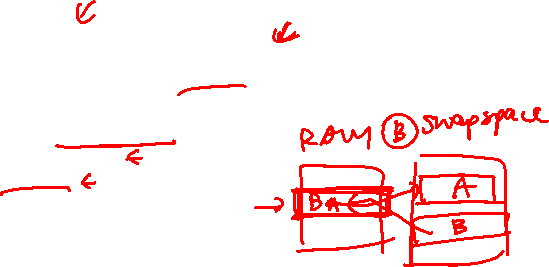 RAM B swapspace
A
BA
B